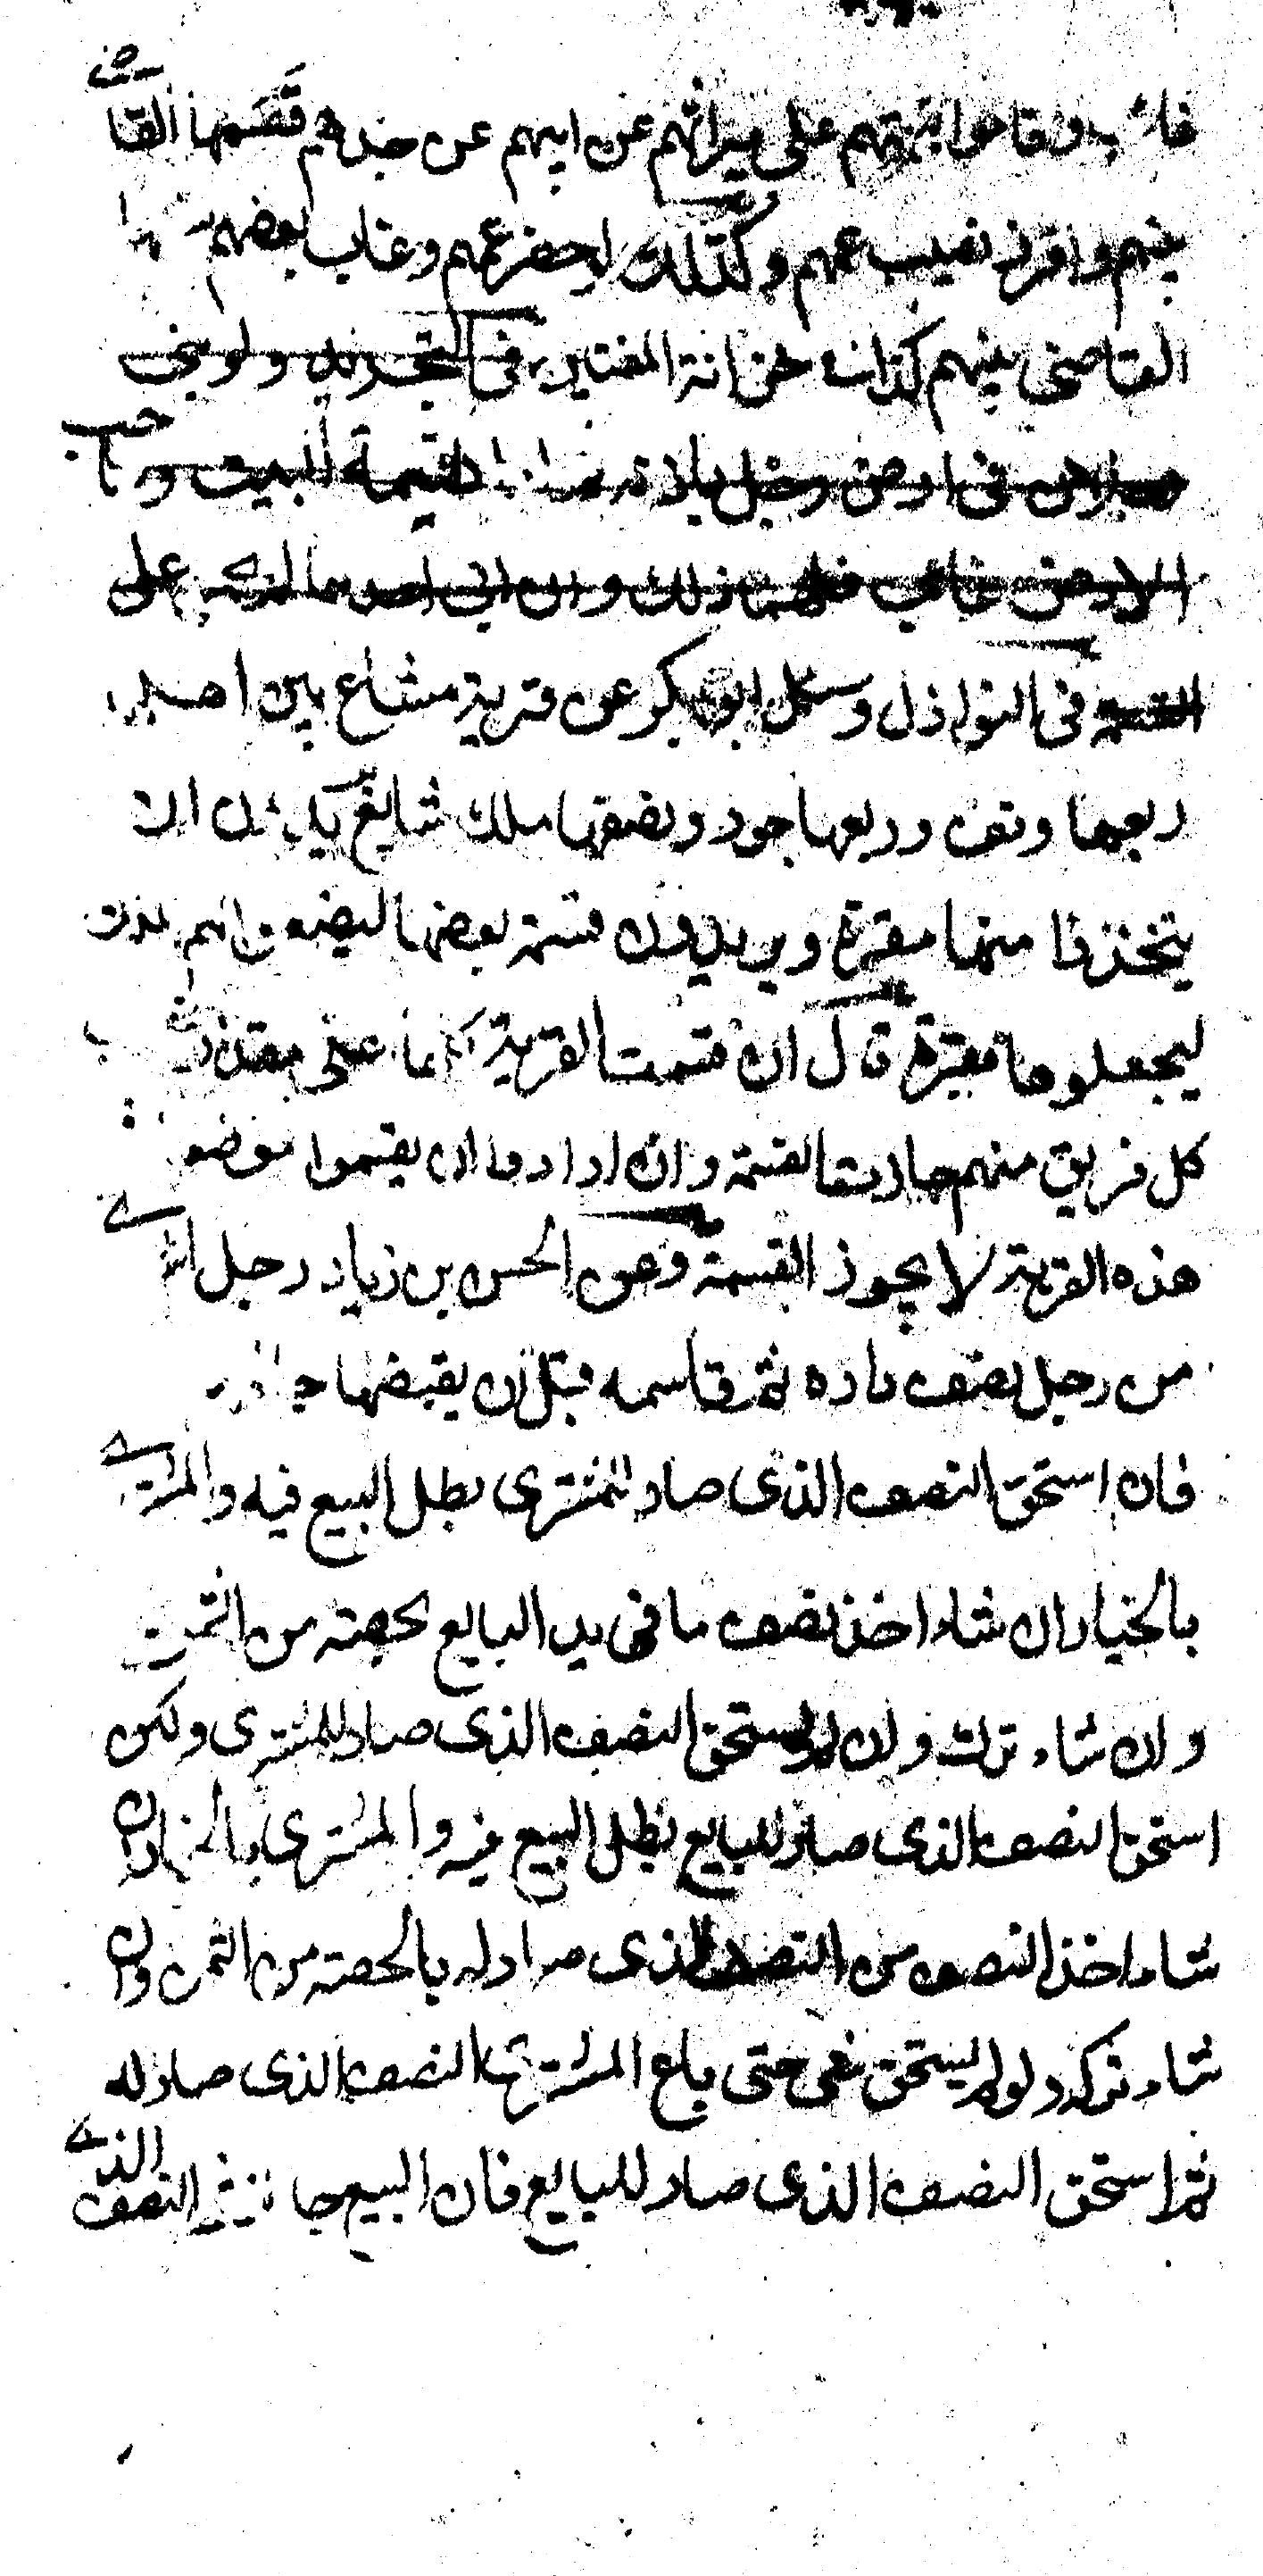 غائب وقاموا بينتهم على ميراثهم عن ابيهم عن جدهم قسمها القاضى
بينهم وافرز نصيب عمهم وكذلك لو حضر عمهم وغاب بعضهم
القاضى بينهم كذا فى خزانة المفتين فى التجريد ولو بنى
رجلان فى ارض رجل باذنه ثم ارادا قسمة البيت وصاحب
الارض غائب فلهما ذلك وان ابى احدهما لم يجبر على
القسمة فى النوازل وسئل ابو بكر عن قرية مشاع بين اهلها
ربعها وقف وربعها ونصفها ملك شايع يريدون ان
يتخذوا منها مقبرة ويريدون قسمة بعضها
ليجعلوها مقبرة قال ان قسمت القرية كلها على مقدار نصيب
كل فريق منهم جازت القسمة وان ارادوا ان يقسموا موضعا
هذه القرية لا يجوز القسمة وعن الحسن بن زياد رجل اشترى
من رجل نصف داره ثم قاسمه قبل ان يقبضها جاز
فان استحق النصف الذى صار للمشترى بطل البيع فيه والمشترى
بالخيار ان شاء اخذ نصف ما فى يد البايع بحصته من الثمن
وان شاء ترك وان لم يستحق النصف الذى صار للمشترى ولكن
استحق النصف الذى صار للبايع بطل البيع فيه والمشترى بالخيار ان
شاء اخذ النصف من النصف الذى صار له بالحصة من الثمن وان
شاء ترك ولو لم يستحق شئ حتى باع المشترى النصف الذى صار له
ثم استحق النصف الذى صار للبايع فان البيع جائز فى النصف الذى